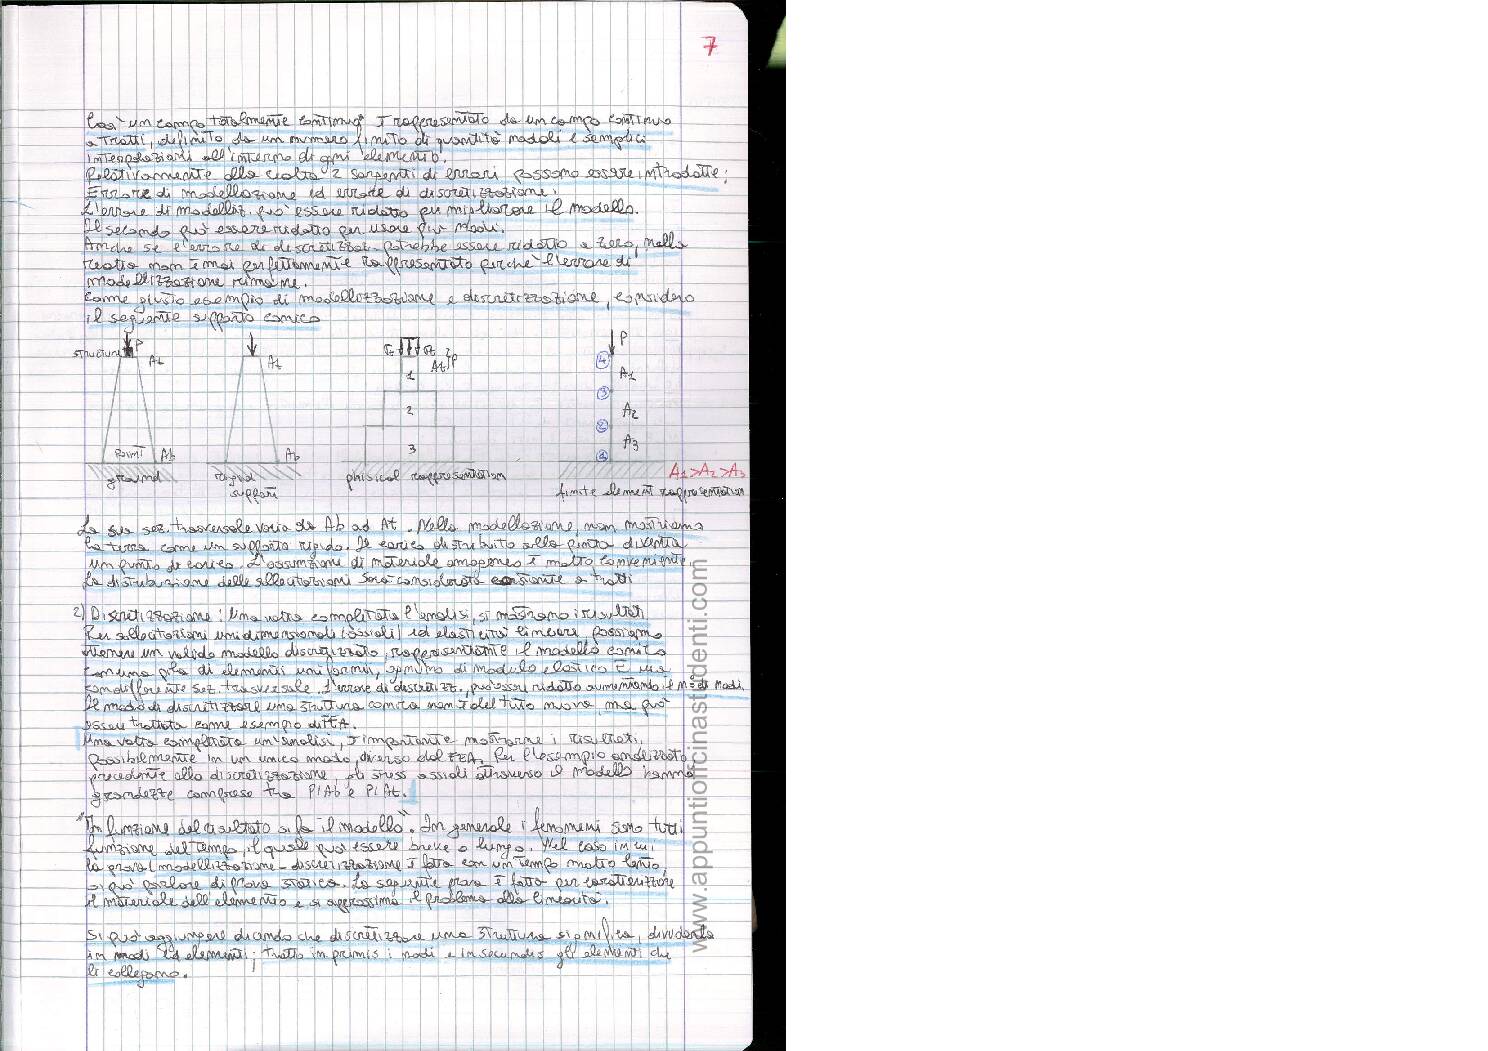 7
Così un campo totalmente continuo è rappresentato da un campo continuo
a tratti, definito da un numero finito di quantità nodali e semplici
interpolazioni all'interno di ogni elemento.
Relativamente alla realtà 2 sorgenti di errori possono essere introdotte:
Errore di modellazione ed errore di discretizzazione.
L'errore di modellaz. può essere ridotto per migliorare il modello.
Il secondo può essere ridotto per usare più nodi.
Anche se l'errore di discretizzaz. potrebbe essere ridotto a zero, nella
realtà non è mai perfettamente rappresentato perché l'errore di
modellizzazione rimane.
Come giusto esempio di modellizzazione e discretizzazione, considero
il seguente supporto conico
structure P At At σt σt At P P
1 2 3
4 3 2 1
A1 A2 A3
Ab Ab
ground rigid support phisical rappresentation finite element rappresentation
A1>A2>A3
La sua sez. trasversale varia da Ab ad At. Nella modellazione, non mostriamo
la terra come un supporto rigido. Il carico distribuito alla punta diventa
un punto di carico. L'assunzione di materiale omogeneo è molto conveniente.
La distribuzione delle sllecitazioni sarà considerata costante a tratti
2) Discretizzazione: Una volta completata l'analisi, si mostrano i risultati
Per sollecitazioni unidimensionali (assiali) ed elasticità lineare possiamo
ottenere un valido modello discretizzato, rappresentante il modello conico
con una pila di elementi uniformi, ognuno di modulo elastico E ma
con differente sez. trasversale. L'errore di discretizz., può essere ridotto aumentando il n° di nodi.
Il modo di discretizzare una struttura conica non è del tutto nuova, ma può
essere trattata come esempio di FEA.
Una volta completata un'analisi, è importante mostrarne i risultati,
possibilmente in un unico modo, diverso dal FEA. Per l'esempio analizzato
precedente alla discretizzazione, gli stress assiali attraverso il modello hanno
grandezze comprese tra P/Ab e P/At.
"In funzione del risultato si fa il modello". In generale i fenomeni sono tutti
funzione del tempo, il quale può essere breve o lungo. Nel caso in cui
la prova (modellizzazione - discretizzazione) è fatta con un tempo molto lento,
si può parlare di prova statica. La seguente prova è fatta per caratterizzare
il materiale dell'elemento e si approssima il problema alla linearità.
Si può aggiungere dicendo che discretizzare una struttura significa, dividerla
in nodi ed elementi; tratto in primis i nodi e in secundis gli elementi che
li collegano.
www.appuntiofficinastudenti.com